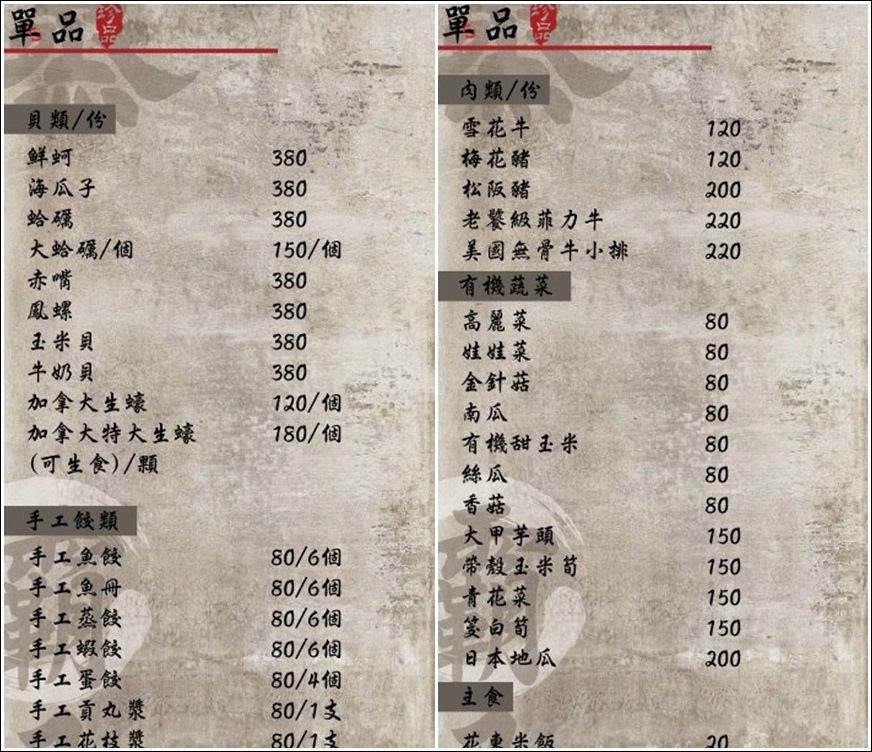 單品
珍品
貝類/份
鮮蚵 380
海瓜子 380
蛤礪 380
大蛤礪/個 150/個
赤嘴 380
鳳螺 380
玉米貝 380
牛奶貝 380
加拿大生蠔 120/個
加拿大特大生蠔 180/個
(可生食)/顆
手工餃類
手工魚餃 80/6個
手工魚冊 80/6個
手工蒸餃 80/6個
手工蝦餃 80/6個
手工蛋餃 80/4個
手工貢丸漿 80/1支
手工花枝漿 80/1支
單品
珍品
肉類/份
雪花牛 120
梅花豬 120
松阪豬 200
老饕級菲力牛 220
美國無骨牛小排 220
有機蔬菜
高麗菜 80
娃娃菜 80
金針菇 80
南瓜 80
有機甜玉米 80
絲瓜 80
香菇 80
大甲芋頭 150
帶殼玉米筍 150
青花菜 150
筊白筍 150
日本地瓜 200
主食
花東米飯 20